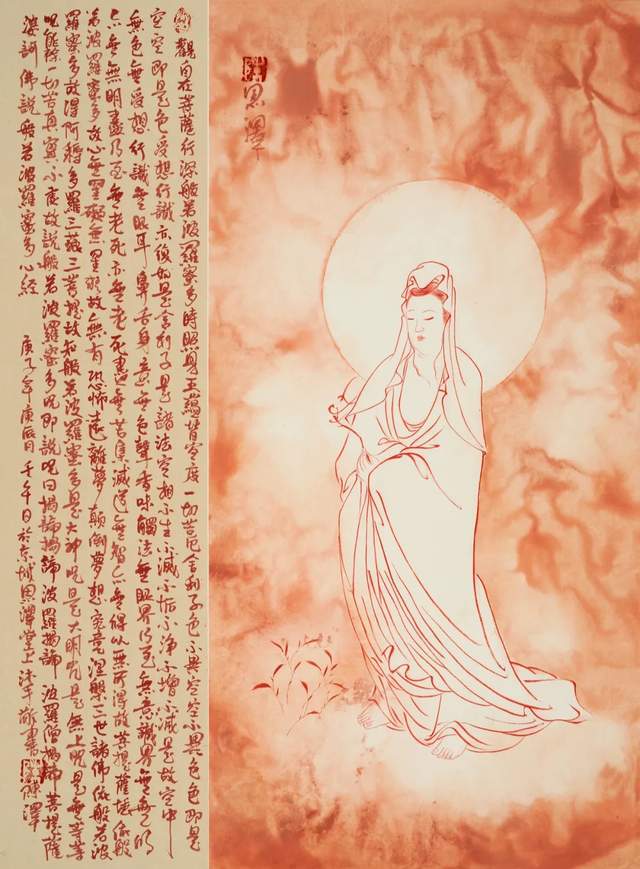 觀自在菩薩行深般若波羅蜜多時照見五蘊皆空度一切苦厄舍利子色不異空空不異色色即是
空空即是色受想行識亦復如是舍利子是諸法空相不生不滅不垢不淨不增不減是故空中
無色無受想行識無眼耳鼻舌身意無色聲香味觸法無眼界乃至無意識界無無明
亦無無明盡乃至無老死亦無老死盡無苦集滅道無智亦無得以無所得故菩提薩埵依般
若波羅蜜多故心無罣礙無罣礙故無有恐怖遠離夢顛倒夢想究竟涅槃三世諸佛依般若波
羅蜜多故得阿耨多羅三藐三菩提故知般若波羅蜜多是大神咒是大明咒是無上咒是無等等
咒能除一切苦真實不虛故說般若波羅蜜多咒即說咒曰揭諦揭諦波羅揭諦波羅僧揭諦菩提薩
婆訶佛說般若波羅蜜多心經 庚子年庚辰月壬午日於京城恩澤堂上沐手敬書
恩澤